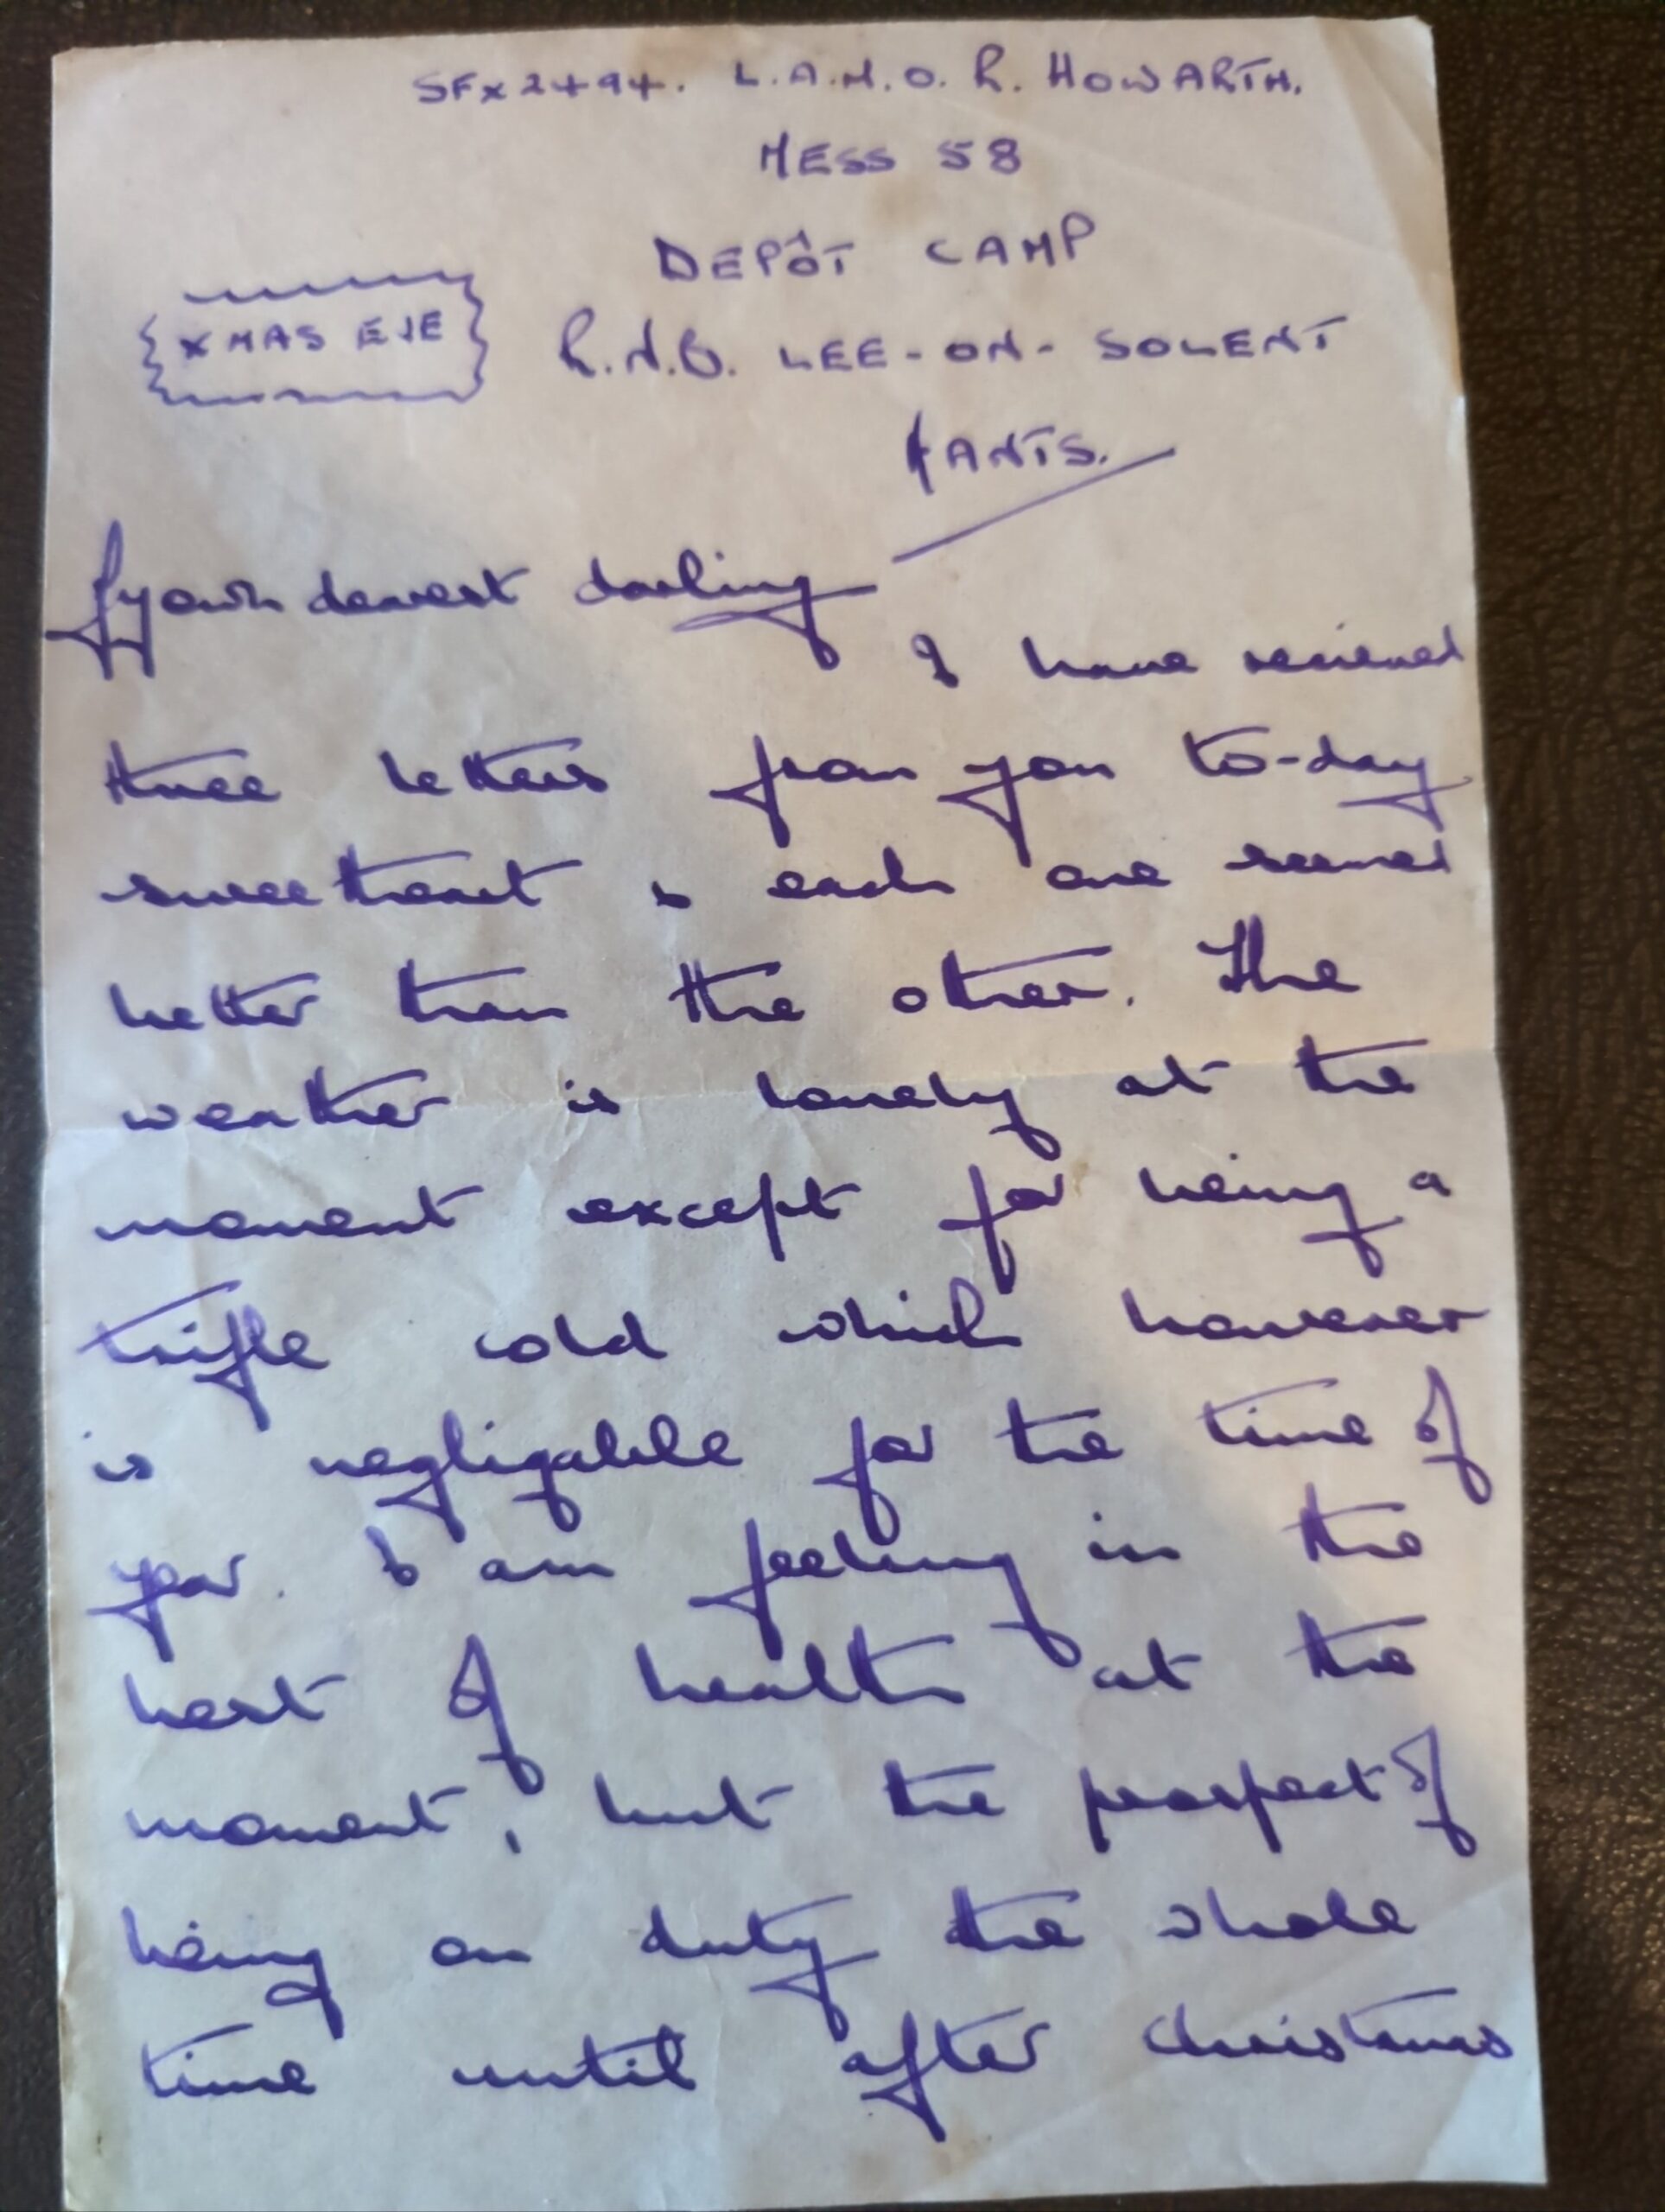 SFX2494. L.A.M.O. R. HOWARTH.
MESS 58
DEPÔT CAMP
XMAS EVE
R.N.B. LEE-ON-SOLENT
HANTS.
My own dearest darling
I have received
three letters from you to-day
sweetheart & each one seemed
better than the other. The
weather is lovely at the
moment except for being a
trifle cold which however
is negligable for the time of
year. I am feeling in the
best of health at the
moment, but the prospect of
being on duty the whole
time until after Christmas